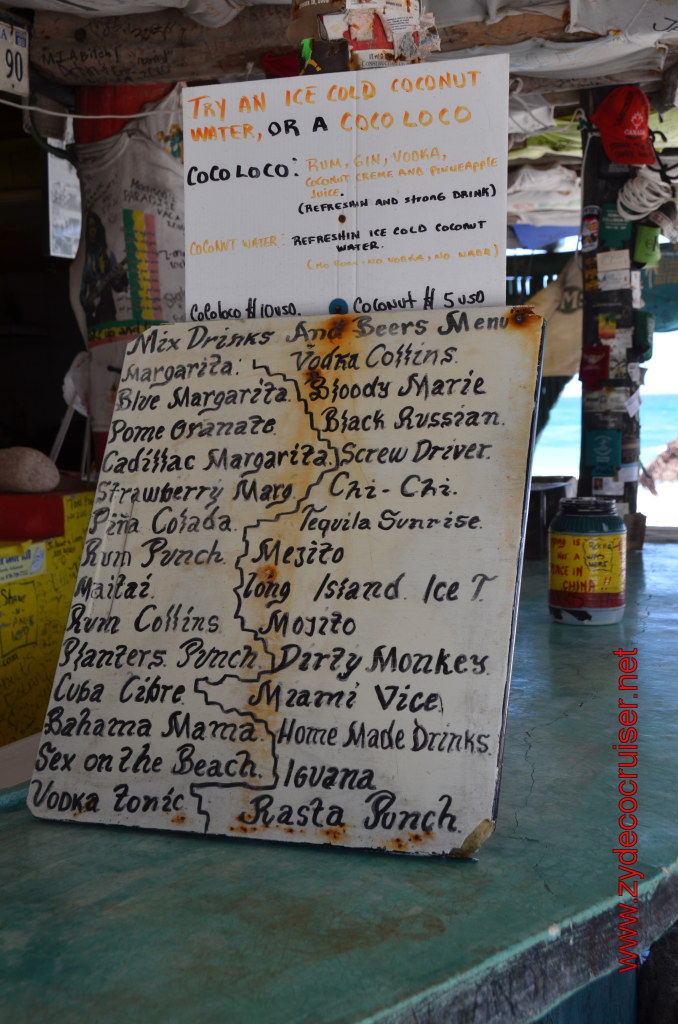 90
TRY AN ICE COLD COCONUT
WATER, OR A COCO LOCO
COCO LOCO: RUM, GIN, VODKA,
COCONUT CREME AND PINNEAPPLE
JUICE.
(REFRESHIN AND STRONG DRINK)
COCONUT WATER: REFRESHIN ICE COLD COCONUT
WATER.
Cocoloco $10 USD. COCONUT $ 5 USD
Mix Drinks And Beers Menu
Margarita: Vodka Collins.
Blue Margarita. Bloody Marie
Pome Granate. Black Russian.
Cadillac Margarita. Screw Driver.
Strawberry Marg Chi-Chi.
Piña Colada. Tequila Sunrise.
Rum Punch. Mezito
Maitai. long Island Ice T.
Rum Collins Mojito
Planters Punch. Dirty Monkey.
Cuba Cibre. Miami Vice
Bahama Mama. Home Made Drinks.
Sex on the Beach. Iguana
Vodka tonic Rasta Punch.
CHINA !!
www.zydecocruiser.net